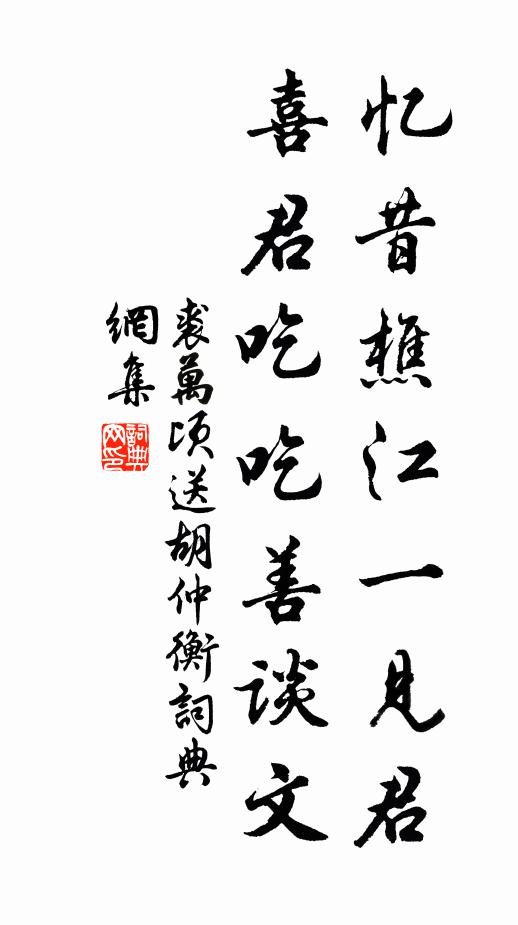 忆昔樵江一见君
喜君吃吃善谈文
裘萬顷送胡仲衡詞典
網集
詞典网印